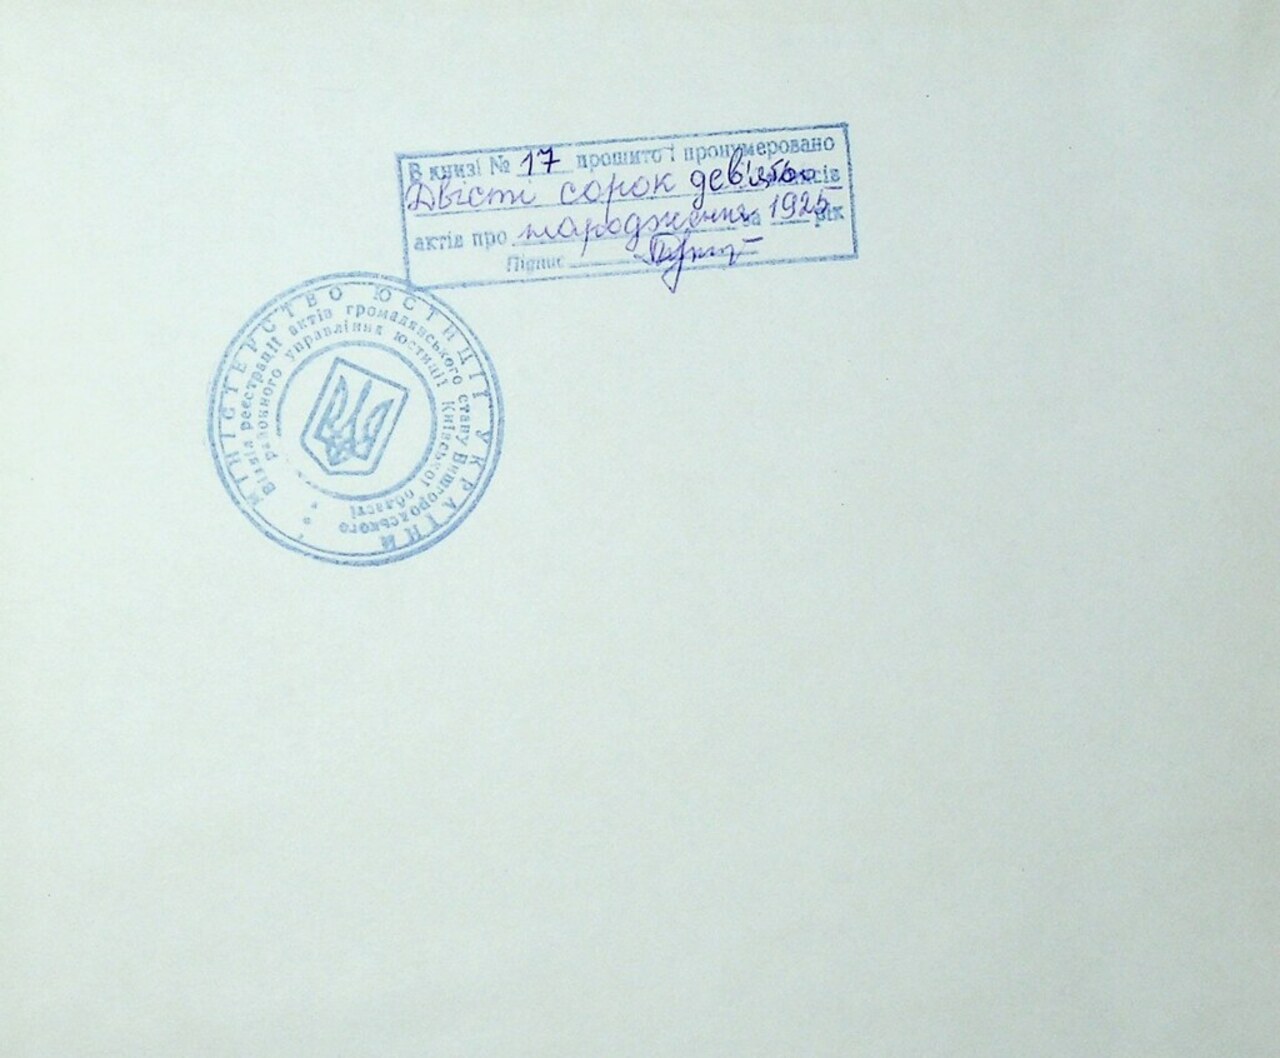 В книзі № 17 прошито і пронумеровано
Двісті сорок дев'ять
актів про народження за 1925 рік
Підпис
МІНІСТЕРСТВО ЮСТИЦІЇ УКРАЇНИ
Відділ реєстрації актів громадянського стану Вишгородського
районного управління юстиції Київської області